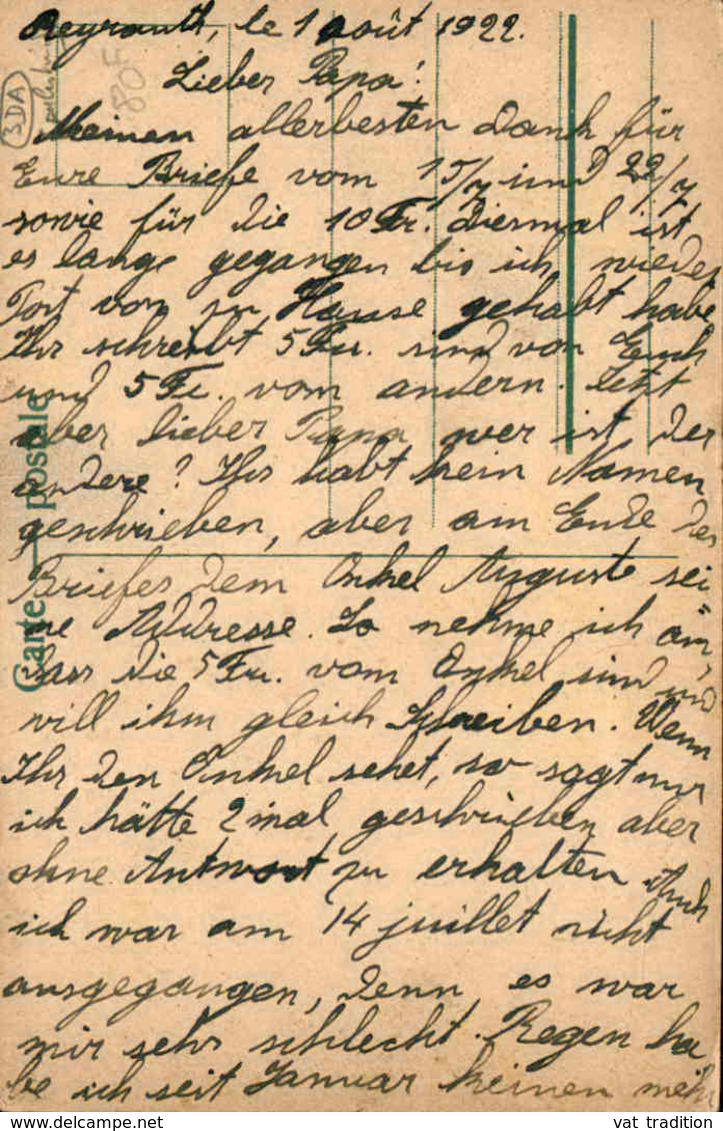 Beyrouth, le 1 août 1922.
Lieber Papa!
Meinen allerbesten Dank für
Eure Briefe vom 15/7 und 22/7
sowie für die 10 Fr. Diesmal ist
es lange gegangen bis ich wieder
Fort von zu Hause gehabt habe
Ihr schreibt 5 Fr. sind von Euch
und 5 Fr. vom andern. Jetzt
aber lieber Papa wer ist der
andere? Ihr habt kein Namen
geschrieben, aber am Ende des
Briefes dem Onkel Auguste sei
ne Addresse. So nehme ich an,
dass die 5 Fr. vom Onkel sind und
will ihm gleich schreiben. Wenn
Ihr den Onkel sehet, so sagt nur
ich hätte 2 mal geschrieben aber
ohne Antwort zu erhalten. Auch
ich war am 14 juillet nicht
ausgegangen, denn es war
mir sehr schlecht. Regen ha
be ich seit Januar keinen mehr
Carte postale
3DA
80F
vat tradition